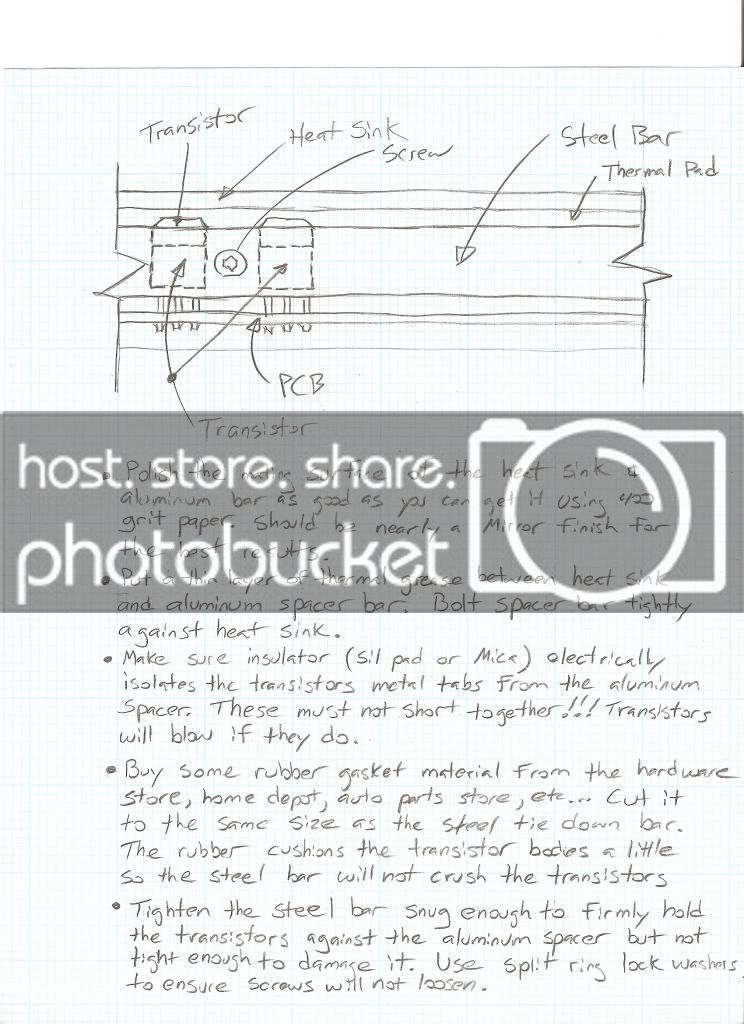 Transistor
Heat Sink
Screw
Steel Bar
Thermal Pad
PCB
Transistor
host. store. share.
photobucket
• Polish the mating surface of the heat sink &
aluminum bar as good as you can get it using 400
grit paper. Should be nearly a Mirror finish for
the best results.
• Put a thin layer of thermal grease between heat sink
and aluminum spacer bar. Bolt spacer bar tightly
against heat sink.
• Make sure insulator (Sil pad or Mica) electrically
isolates the transistors metal tabs from the aluminum
Spacer. These must not short together!!! Transistors
will blow if they do.
• Buy some rubber gasket material from the hardware
store, home depot, auto parts store, etc... Cut it
to the same size as the steel tie down bar.
The rubber cushions the transistor bodies a little
so the steel bar will not crush the transistors
• Tighten the steel bar snug enough to firmly hold
the transistors against the aluminum spacer but not
tight enough to damage it. Use split ring lock washers
to ensure screws will not loosen.